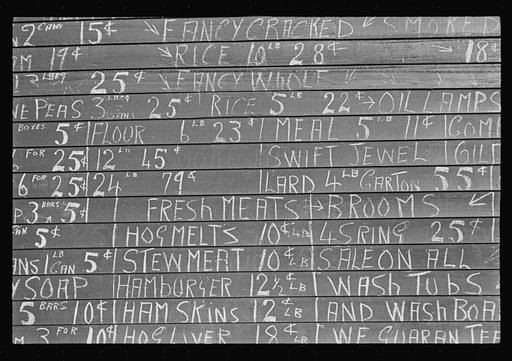 2 CANS 15¢ ↘ FANCY CRACKED ↙ SMOKED
M 19¢ ↘ RICE 10 LB 28¢ → 18¢
LARG 25¢ ↘ FANCY WHOLE
NE PEAS 3 LARG CANS 25¢ RICE 5 LB 22¢ → OIL LAMPS
BOXES 5¢ FLOUR 6 LB 23¢ MEAL 5 LB 11¢ COM
6 FOR 25¢ 12 LB 45¢ SWIFT JEWEL
6 FOR 25¢ 24 LB 79¢ LARD 4 LB CARTON 55¢
P 3 BARS 5¢ FRESH MEATS → BROOMS ↙
5¢ HOG MELTS 10¢ LB 4 SRING 25¢
ANS 1 CAN 5¢ STEW MEAT 10¢ LB SALE ON ALL
Y SOAP HAMBURGER 12½¢ LB WASH TUBS
5 BARS 10¢ HAM SKINS 12¢ LB AND WASH BOA
M 3 FOR 10¢ HOG LIVER 8¢ LB WE GUARANTEE